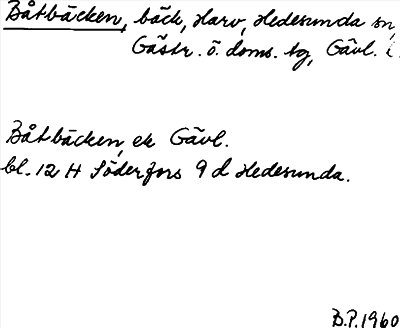 Båtbäcken, bäck, Harv, Hedesunda sn,
Gästr. ö. doms. tg, Gävl. l.
Båtbäcken, ek Gävl.
bl. 12 H Söderfors 9 d Hedesunda.
B.P. 1960